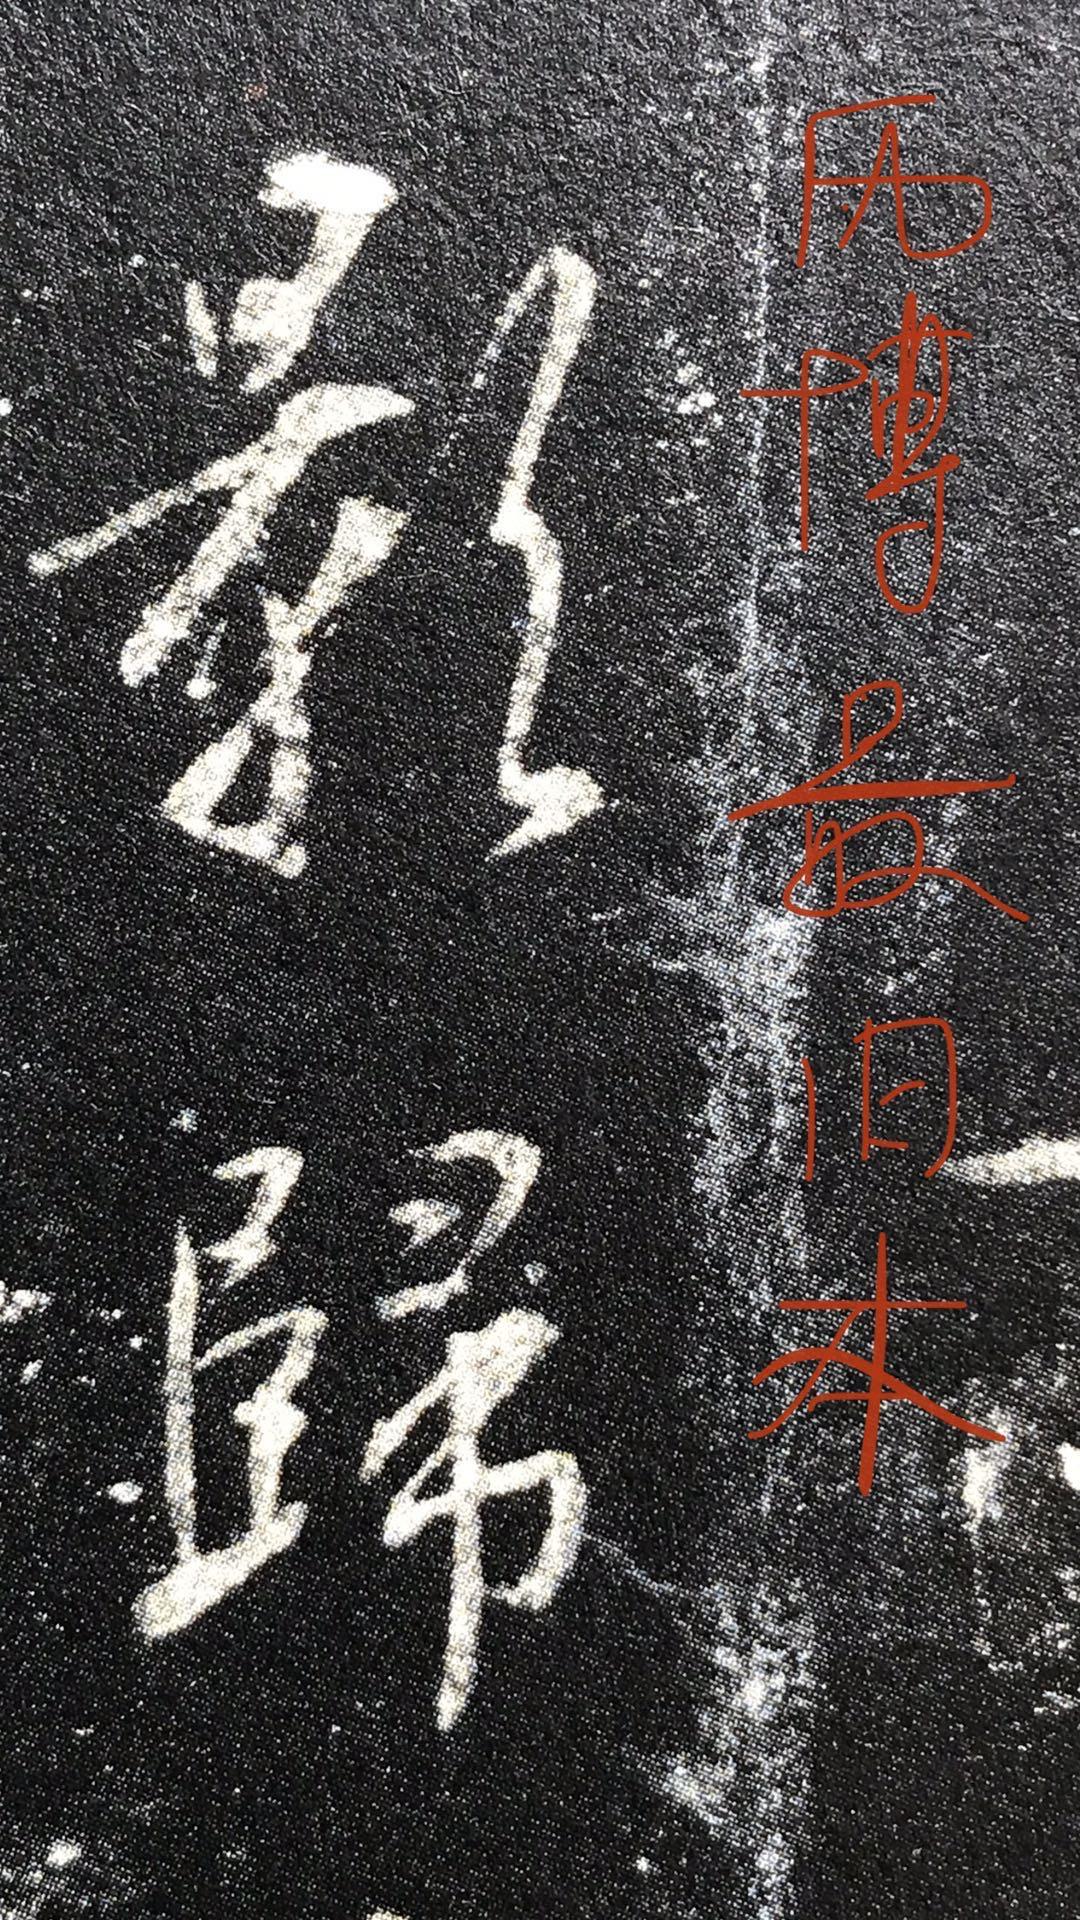 历博最旧本
影歸